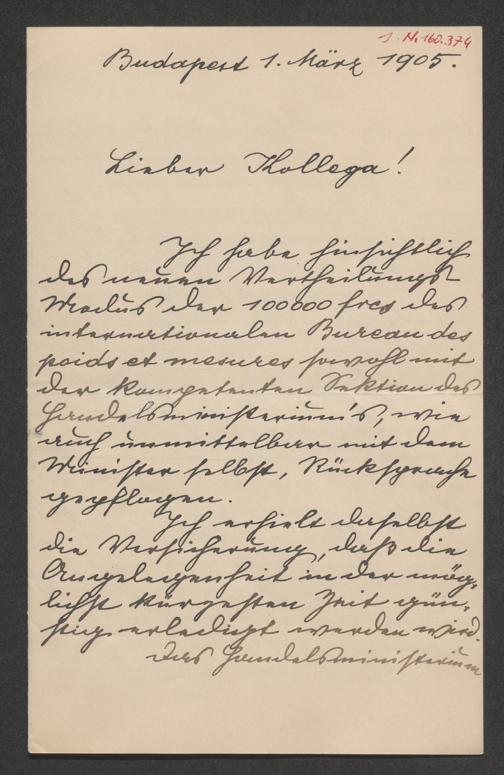 J. N. 160.374
Budapest 1. März 1905.
Lieber Kollega!
Ich habe hinsichtlich
des neuen Vertheilungs-
Modus der 100000 frcs des
internationalen Bureau des
poids et mesures sowohl mit
der kompetenten Sektion des
Handelsministerium's, wie
auch unmittelbar mit dem
Minister selbst, Rücksprache
gepflogen.
Ich erhielt daselbst
die Versicherung, daß die
Angelegenheit in der mög-
lichst kürzesten Zeit gün-
stig erledigt werden wird.
Das Handelsministerium